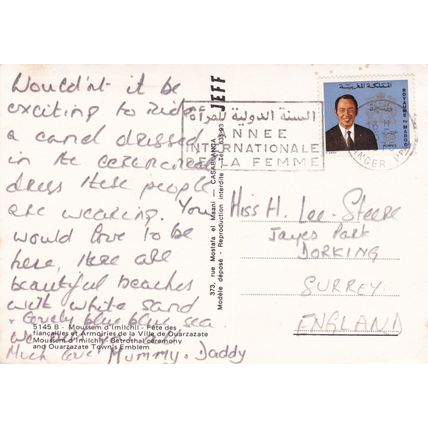 Wouldn't it be
exciting to ride
a camel dressed
in the ceremonial
dress these people
are wearing. You
would love to be
here, there are
beautiful beaches
with white sand
& lovely blue blue sea
we
Much love Mummy & Daddy
5145 B - Moussem d'Imilchil - Fête des
fiançailles et Armoiries de la Ville de Ouarzazate
Moussem d'Imilchil - Betrothal ceremony
and Ouarzazate Town's Emblem
373, rue Mostafa el Maani - CASABLANCA
Modèle déposé - Reproduction interdite
JEFF
السنة الدولية للمرأة
ANNEE
INTERNATIONALE
DE LA FEMME
المملكة المغربية
ROYAUME DU MAROC
TANGER
Miss H. Lee-Steere
Jayes Park
DORKING
SURREY.
ENGLAND